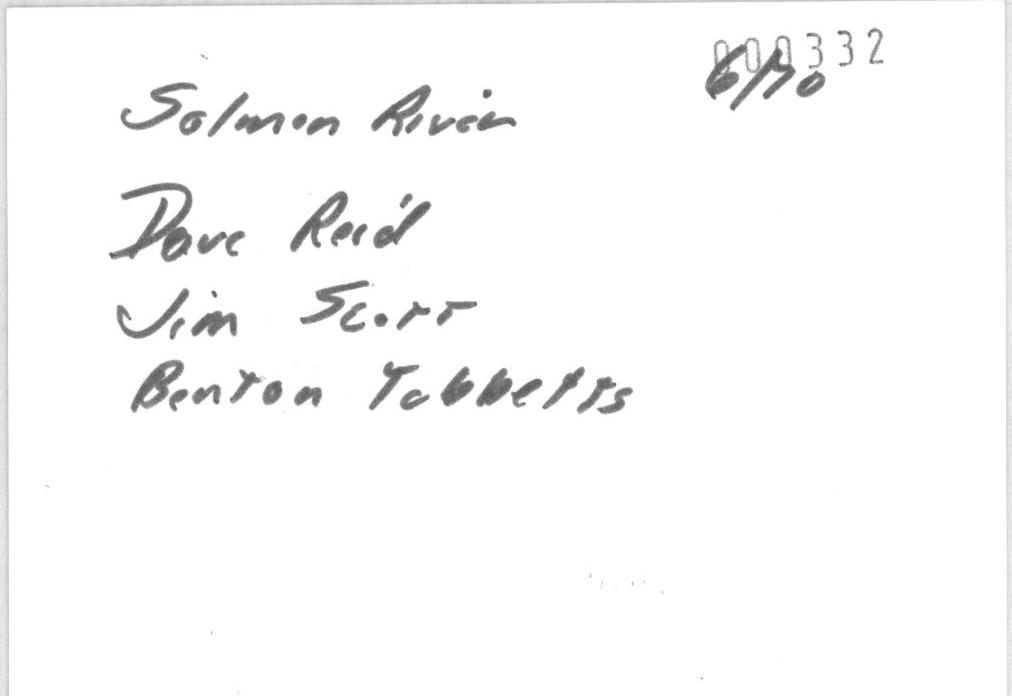 000332
6/70
Salmon River
Dave Reid
Jim Scott
Benton Tabbetts